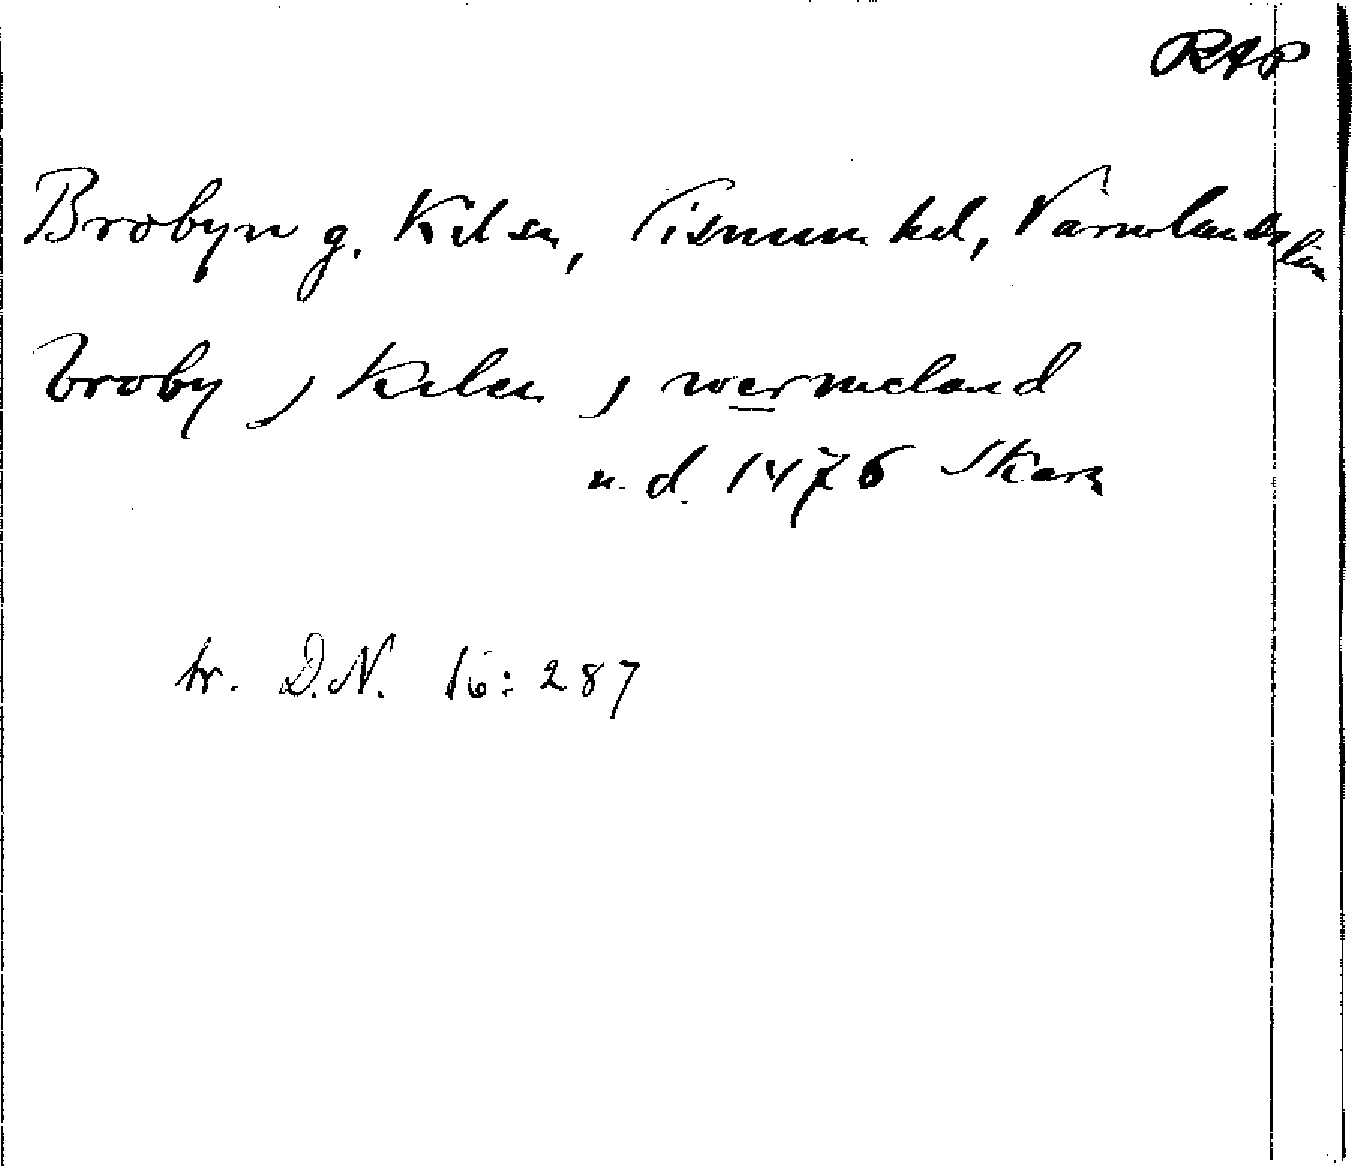 RAP
Brobyn g. Kil sn, Visnum hd, Värmlands län
broby j kilen j wermeland
u. d. 1476 Skara
tr. D.N. 16:287